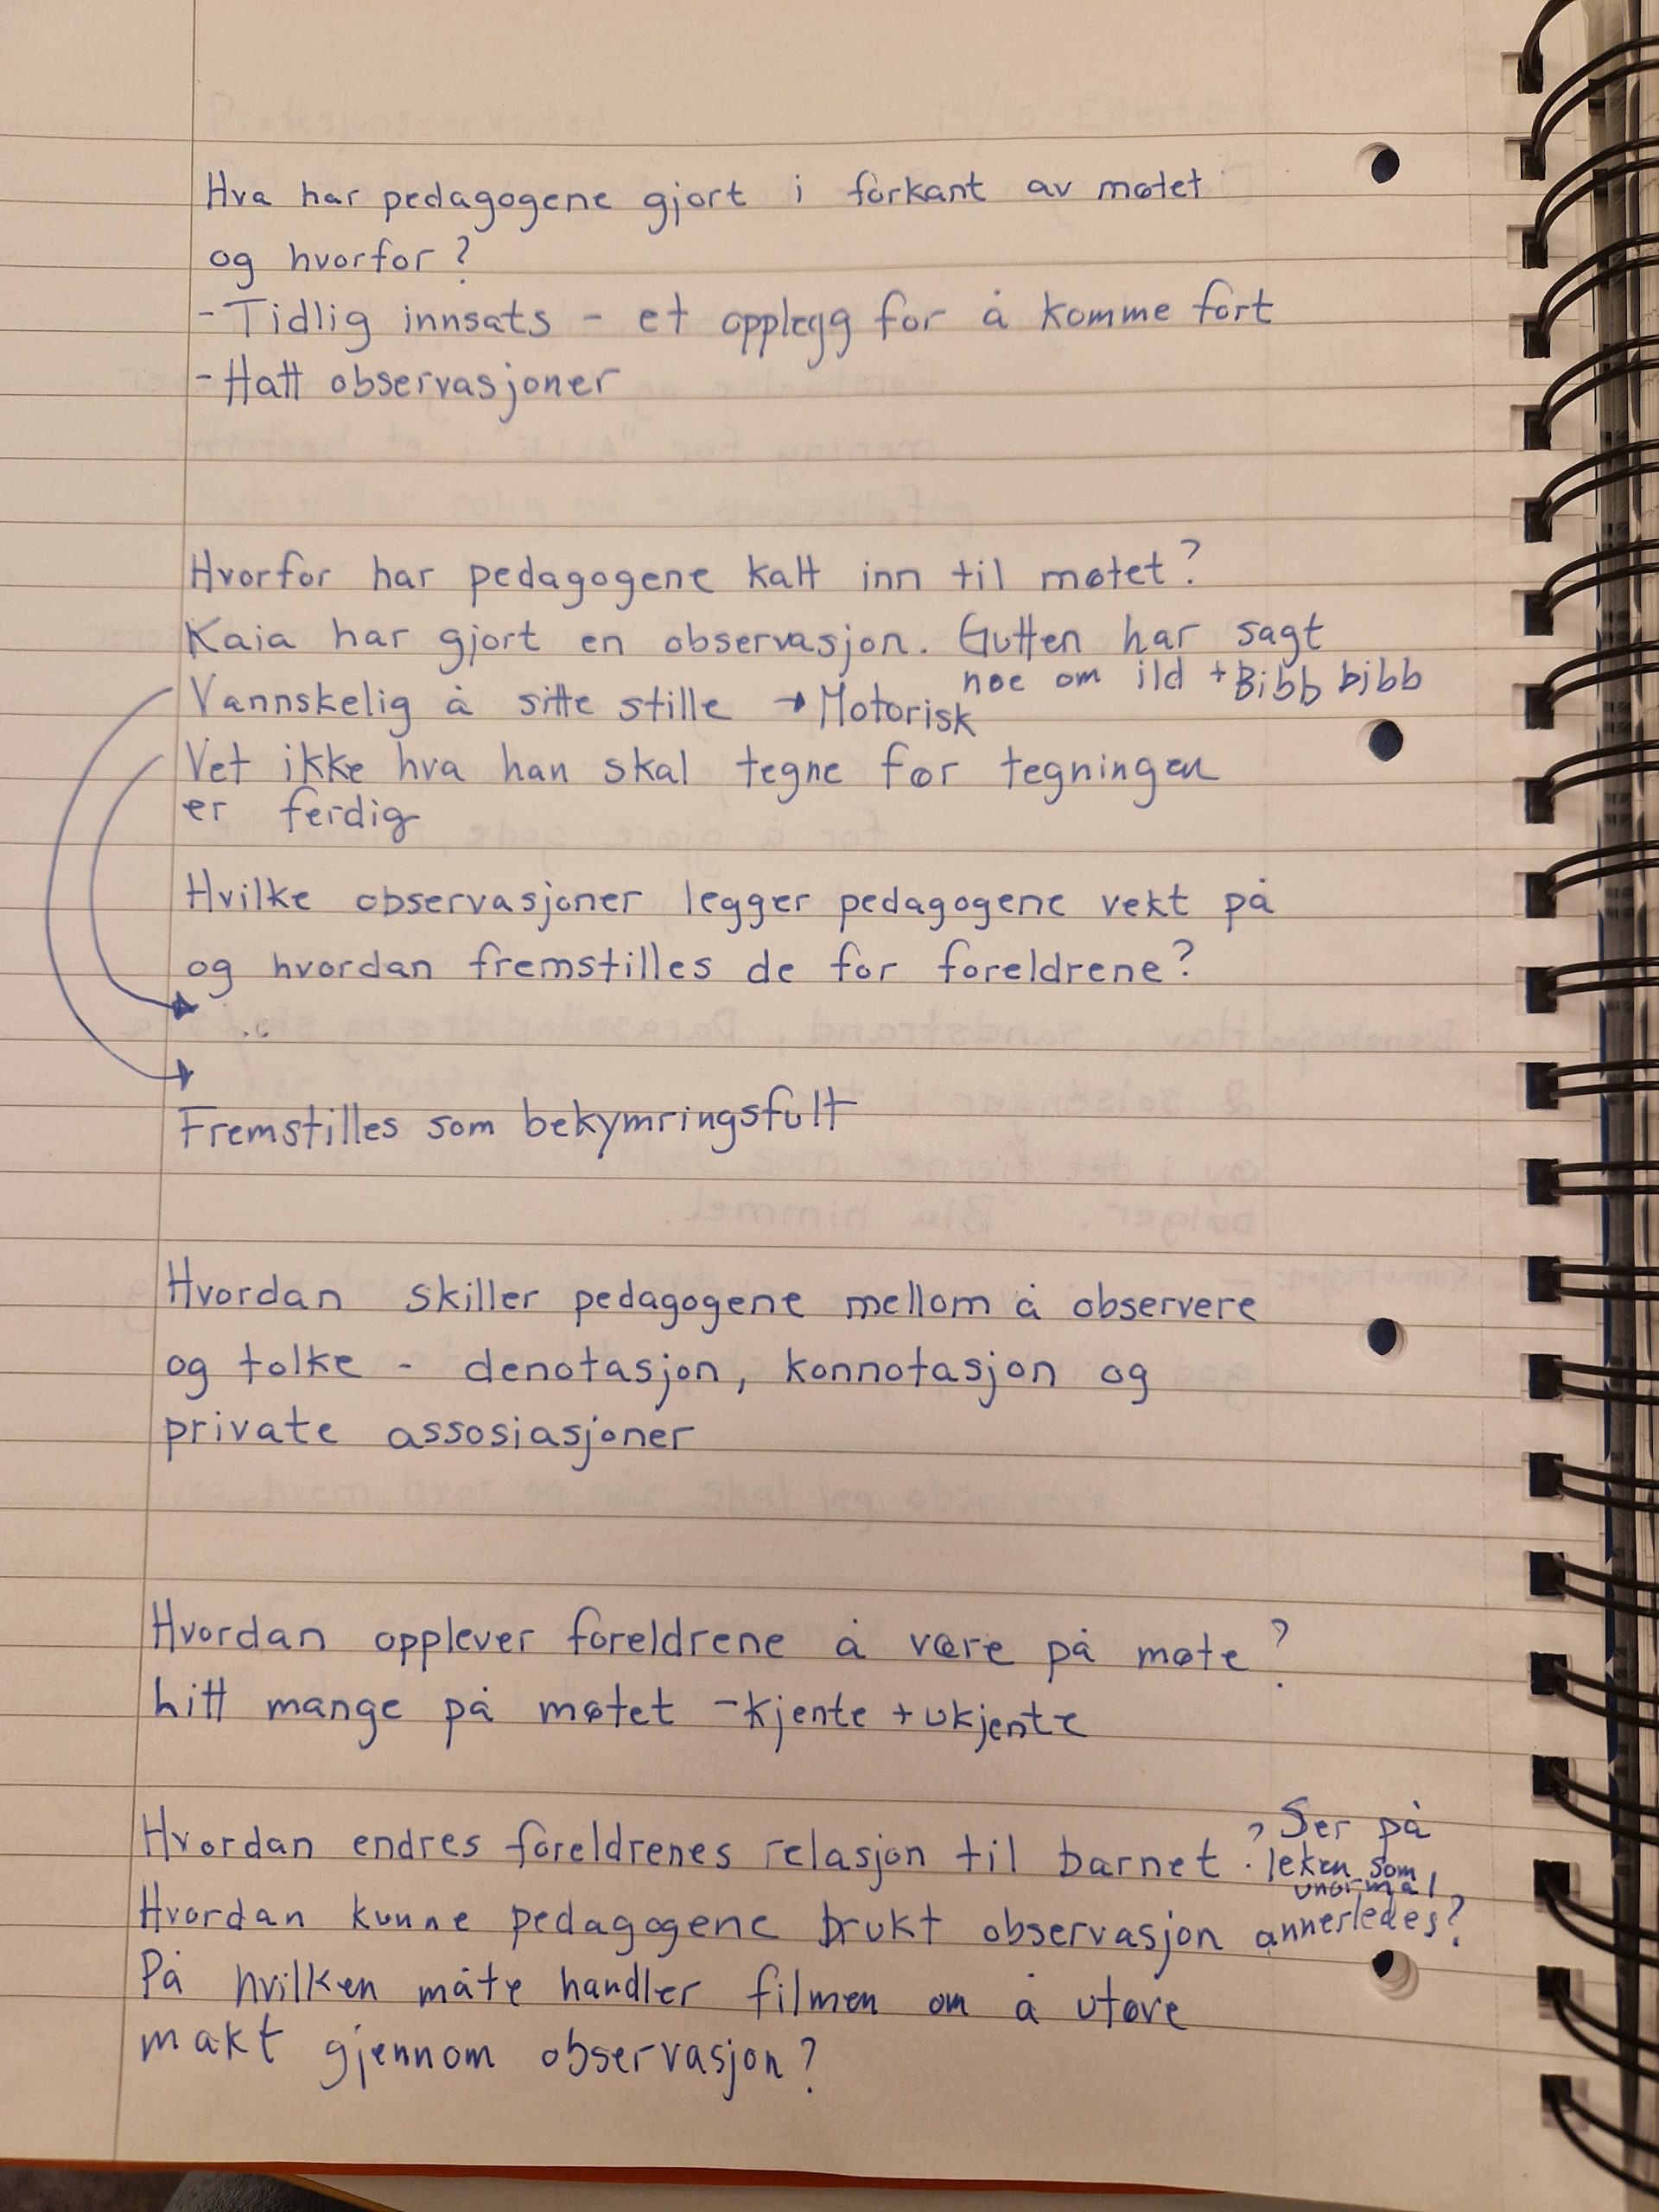 Hva har pedagogene gjort i forkant av møtet
og hvorfor?
- Tidlig innsats - et opplegg for å komme fort
- Hatt observasjoner
Hvorfor har pedagogene kalt inn til møtet?
Kaia har gjort en observasjon. Gutten har sagt
noe om ild + Bibb bibb
Vannskelig å sitte stille → Motorisk
Vet ikke hva han skal tegne før tegningen
er ferdig
Hvilke observasjoner legger pedagogene vekt på
og hvordan fremstilles de for foreldrene?
Fremstilles som bekymringsfullt
Hvordan skiller pedagogene mellom å observere
og tolke - denotasjon, konnotasjon og
private assosiasjoner
Hvordan opplever foreldrene å være på møte?
litt mange på møtet - kjente + ukjente
Hvordan endres foreldrenes relasjon til barnet?
Ser på
leken som
unormal
Hvordan kunne pedagogene brukt observasjon annerledes?
På hvilken måte handler filmen om å utøve
makt gjennom observasjon?